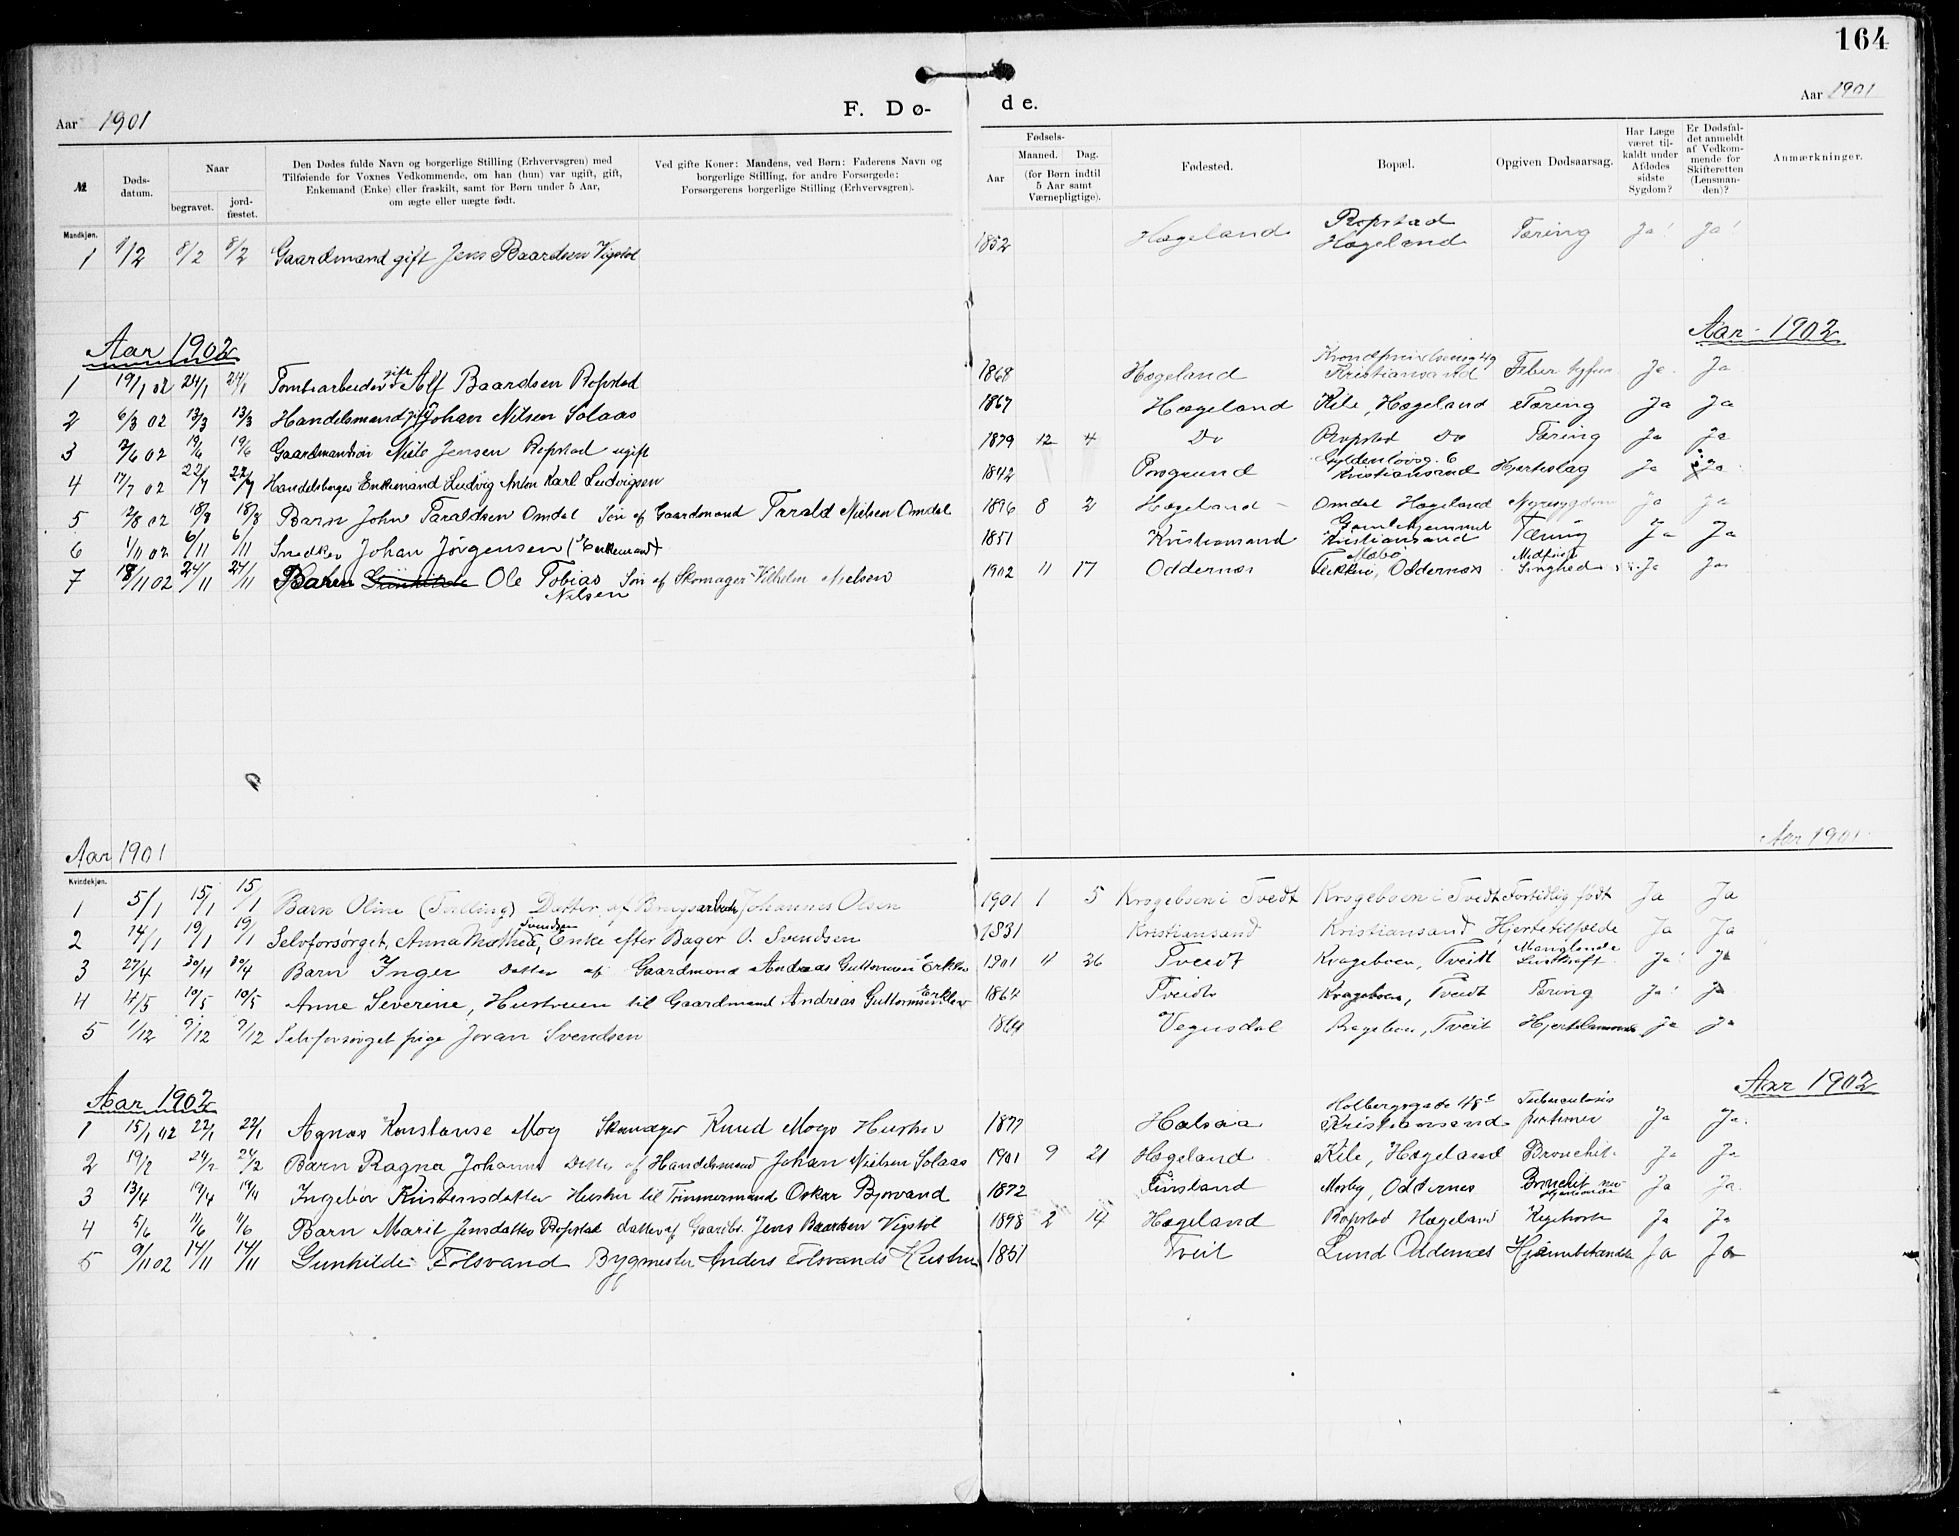 164
Aar 1901
F. Dø-
de.
Aar 1901
№
Døds-datum.
Naar
begravet.
jord-fæstet.
Den Dødes fulde Navn og borgerlige Stilling (Erhvervsgren) med
Tilføiende for Voxnes Vedkommende, om han (hun) var ugift, gift,
Enkemand (Enke) eller fraskilt, samt for Børn under 5 Aar,
om ægte eller uægte født.
Ved gifte Koner: Mandens, ved Børn: Faderens Navn og
borgerlige Stilling, for andre Forsørgede:
Forsørgerens borgerlige Stilling (Erhvervsgren).
Aar
Fødsels-
Maaned. Dag.
(for Børn indtil
5 Aar samt
Værnepligtige).
Fødested.
Bopæl.
Opgiven Dødsaarsag.
Har Læge
været til-
kaldt under
Afdødes
sidste
Sygdom?
Er Dødsfal-
det anmeldt
af Vedkom-
mende for
Skifteretten
(Lensman-
den)?
Anmærkninger.
Mandkjøn.
1 /2 8/2 8/2 Gaardmand gift Jens Baardsen Vigstøl 1852 Hægeland Ropstad Hægeland Tæring Ja! Ja!
Aar 1902
Aar 1902
1 19/1 02 24/1 24/1 gift Alf Baardsen Ropstad 1868 Hægeland Kristiansand Feber Ja Ja
2 6/3 02 13/3 13/3 Handelsmand gift Johan Nilsen Solaas 1867 Hægeland Kile, Hægeland Tæring Ja Ja
3 /6 02 19/6 19/6 Niels Jensen Ropstad ugift 1879 12 4 Do Ropstad Do Tæring Ja Ja
4 17/7 02 22/7 22/7 Handelsborger Enkemand Ludvig Anton Karl Ludvigsen 1842 Porsgrund Gyldenløvsg. 6 Kristiansand Hjerteslag Ja Ja
5 2/8 02 18/8 18/8 Barn John Taraldsen Omdal Søn af Gaardmand Tarald Nielsen Omdal 1896 8 2 Hægeland Omdal Hægeland Nyresygdom Ja Ja
6 1/11 02 6/11 6/11 Snedker Johan Jørgensen (Enkemand) 1851 Kristiansand Gamlehjemmet Kristiansand Tæring Ja Ja
7 18/11 02 24/11 24/11 Barn Ole Tobias Nilsen Søn af Skomager Vilhelm Nielsen 1902 11 17 Oddernes Flekkerø, Oddernes Ja Ja
Aar 1901
Aar 1901
Kvindekjøn.
1 5/1 15/1 15/1 Barn Oline (Tvilling) Datter af Johannes Olsen 1901 1 5 Krogeboen i Tvedt Krogeboen i Tvedt Fortidlig født Ja Ja
2 14/1 19/1 19/1 Selvforsørget, Anna Mathea Svendsen, Enke efter Bager O. Svendsen 1831 Kristiansand Kristiansand Hjertetilfælde Ja Ja
3 27/4 30/4 30/4 Barn Inger Datter af Gaardmand Andreas Guttormsen Erklev 1901 4 26 Tveidt Krageboen, Tveit Manglende Livskraft Ja! Ja
4 4/5 10/5 10/5 Anne Severine, Hustruen til Gaardmand Andreas Guttormsen Erklev 1864 Tveidt Krageboen, Tveidt Tæring Ja! Ja
5 1/12 9/12 9/12 Selvforsørget pige Joran Svendsen Vegusdal Krageboen, Tveit Ja Ja
Aar 1902
Aar 1902
1 15/1 02 22/1 22/1 Agnes Konstanse Moy Skomager Knud Moys Hustru 1877 Halsaa Holbergsgade Kristiansand Tuberculosis Ja Ja.
2 19/2 24/2 24/2 Barn Ragna Johanne Datter af Handelsmand Johan Nielsen Solaas 1901 9 21 Hægeland Kile, Hægeland Bronchit Ja Ja
3 13/4 19/4 19/4 Ingebor Kristensdatter Hustru til Tømmermand Oskar Bjorvand 1872 Finsland Mosby, Oddernes Bronchit Ja Ja.
4 5/6 11/6 11/6 Barn Marit Jensdatter Ropstad datter af Gaardbr. Jens Baardsen Vigstøl 1898 2 14 Hægeland Ropstad Hægeland Kighoste Ja Ja
5 9/11 02 14/11 14/11 Gunhilde Tolsvand Bygmester Anders Tolsvands Hustru 1851 Tveit Lund Oddernes Ja Ja